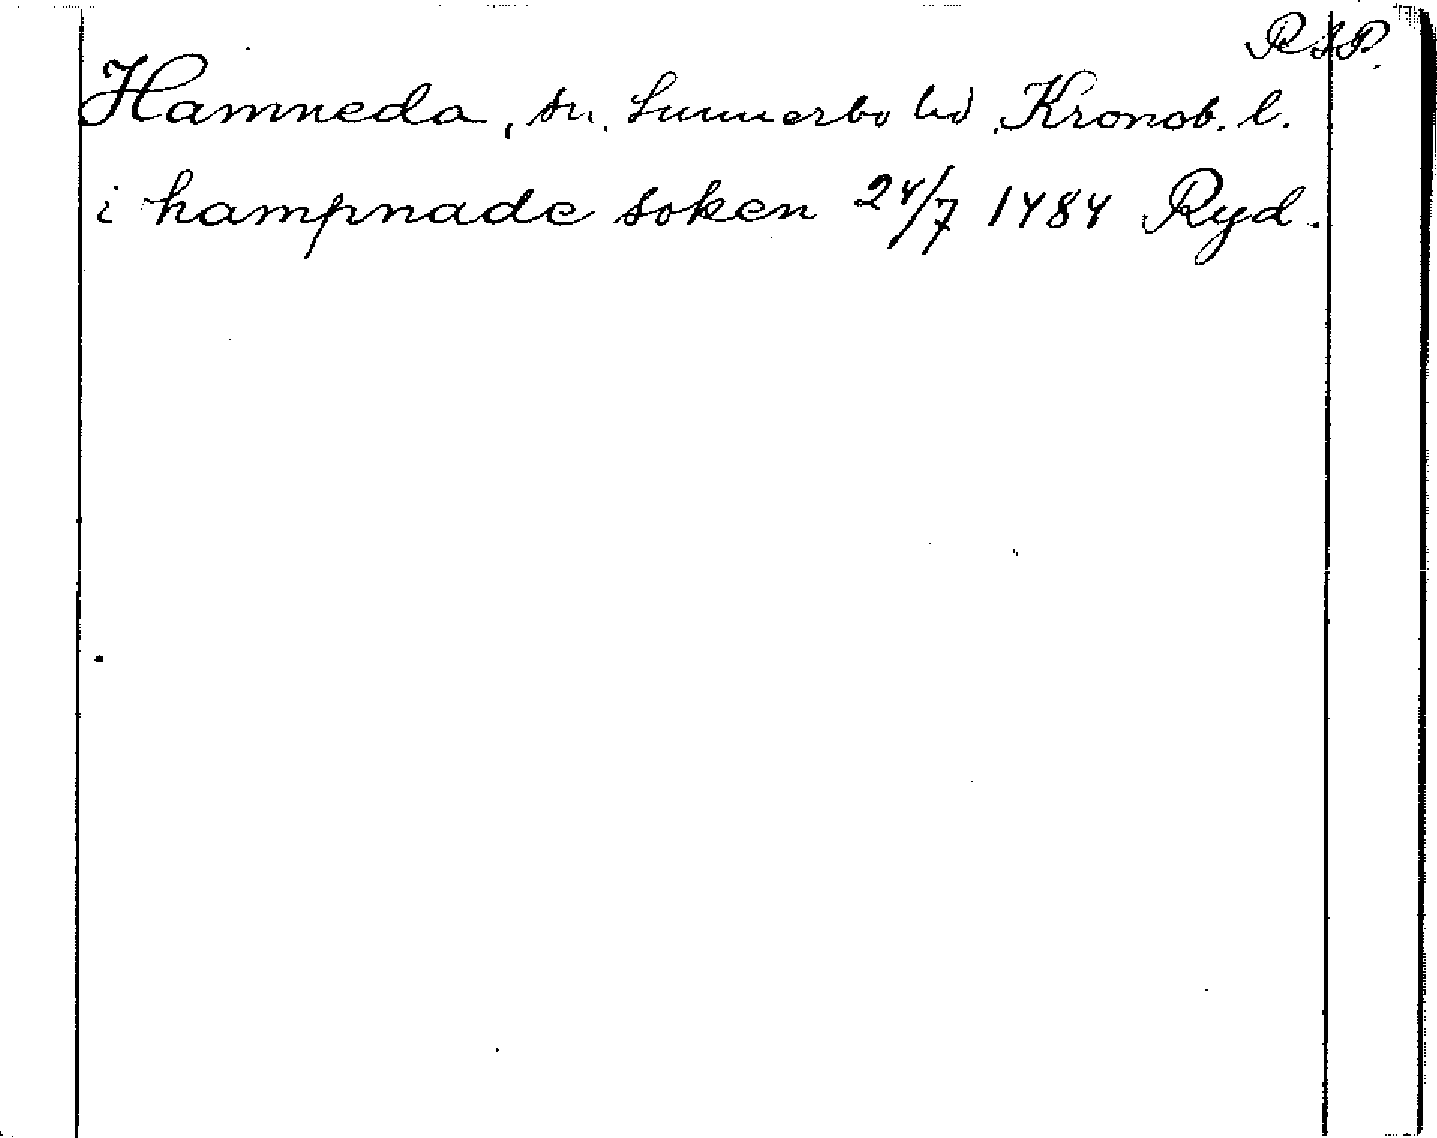 RAP.
Hamneda, sn. Sunnerbo hd Kronob. l.
i hampnade soken 24/7 1484 Ryd.